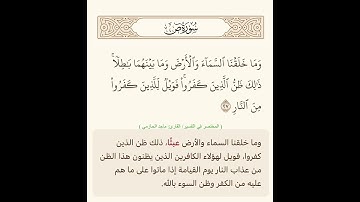 سورة ص
وَمَا خَلَقْنَا ٱلسَّمَآءَ وَٱلْأَرْضَ وَمَا بَيْنَهُمَا بَٰطِلًا ۚ
ذَٰلِكَ ظَنُّ ٱلَّذِينَ كَفَرُوا۟ ۚ فَوَيْلٌ لِّلَّذِينَ كَفَرُوا۟
مِنَ ٱلنَّارِ ٢٧
( المختصر في التفسير | القارئ: ماجد الحازمي )
وما خلقنا السماء والأرض عبثًا، ذلك ظن الذين
كفروا، فويل لهؤلاء الكافرين الذين يظنون هذا الظن
من عذاب النار يوم القيامة إذا ماتوا على ما هم
عليه من الكفر وظن السوء بالله.